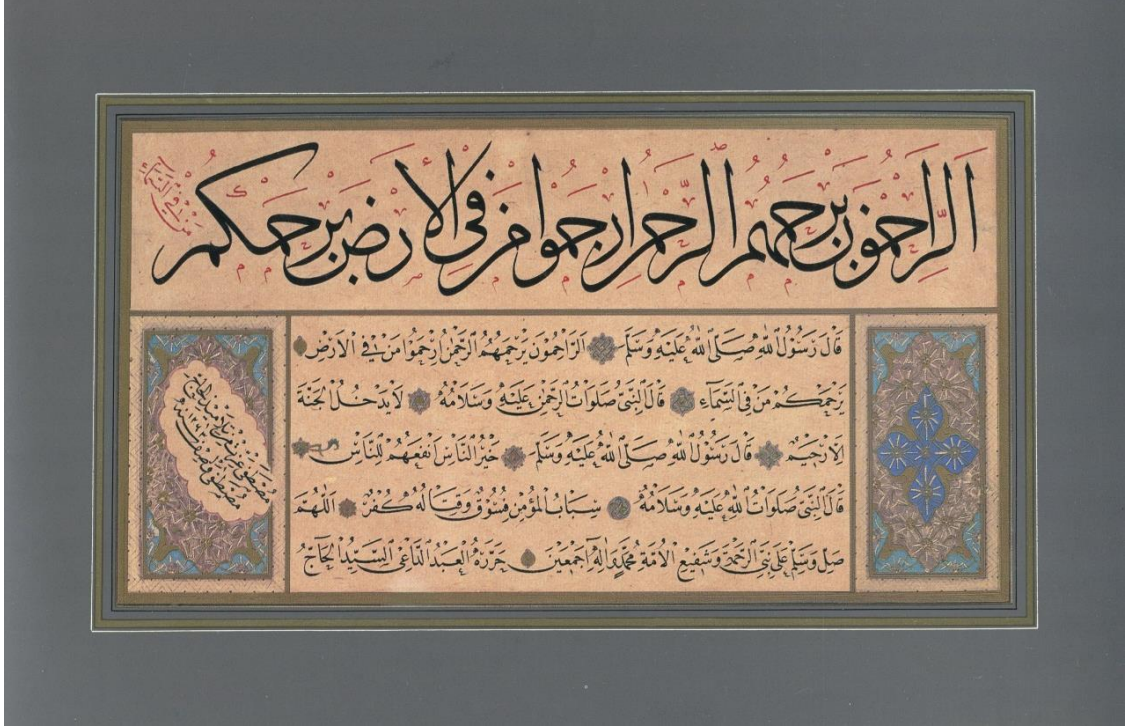 الراحمون يرحمهم الرحمن ارحموا من في الارض يرحمكم
من في السماء
قَالَ رَسُولُ اللهِ صَلَّى اللهُ عَلَيْهِ وَسَلَّمَ اَلرَّاحِمُونَ يَرْحَمُهُمُ الرَّحْمٰنُ اِرْحَمُوا مَنْ فِي الْاَرْضِ
يَرْحَمْكُمْ مَنْ فِي السَّمَآءِ قَالَ النَّبِيُّ صَلَوَاتُ الرَّحْمٰنِ عَلَيْهِ وَسَلَامُهُ لَا يَدْخُلُ الْجَنَّةَ
اِلَّا رَحِيمٌ قَالَ رَسُولُ اللهِ صَلَّى اللهُ عَلَيْهِ وَسَلَّمَ خَيْرُ النَّاسِ اَنْفَعُهُمْ لِلنَّاسِ
قَالَ النَّبِيُّ صَلَوَاتُ اللهِ عَلَيْهِ وَسَلَامُهُ سِبَابُ الْمُؤْمِنِ فُسُوقٌ وَقِتَالُهُ كُفْرٌ اَللّٰهُمَّ
صَلِّ وَسَلِّمْ عَلَى نَبِيِّ الرَّحْمَةِ وَشَفِيعِ الْاُمَّةِ مُحَمَّدٍ وَاٰلِهِ اَجْمَعِينَ حَرَّرَهُ الْعَبْدُ الدَّاعِي السَّيِّدُ الْحَاجُّ